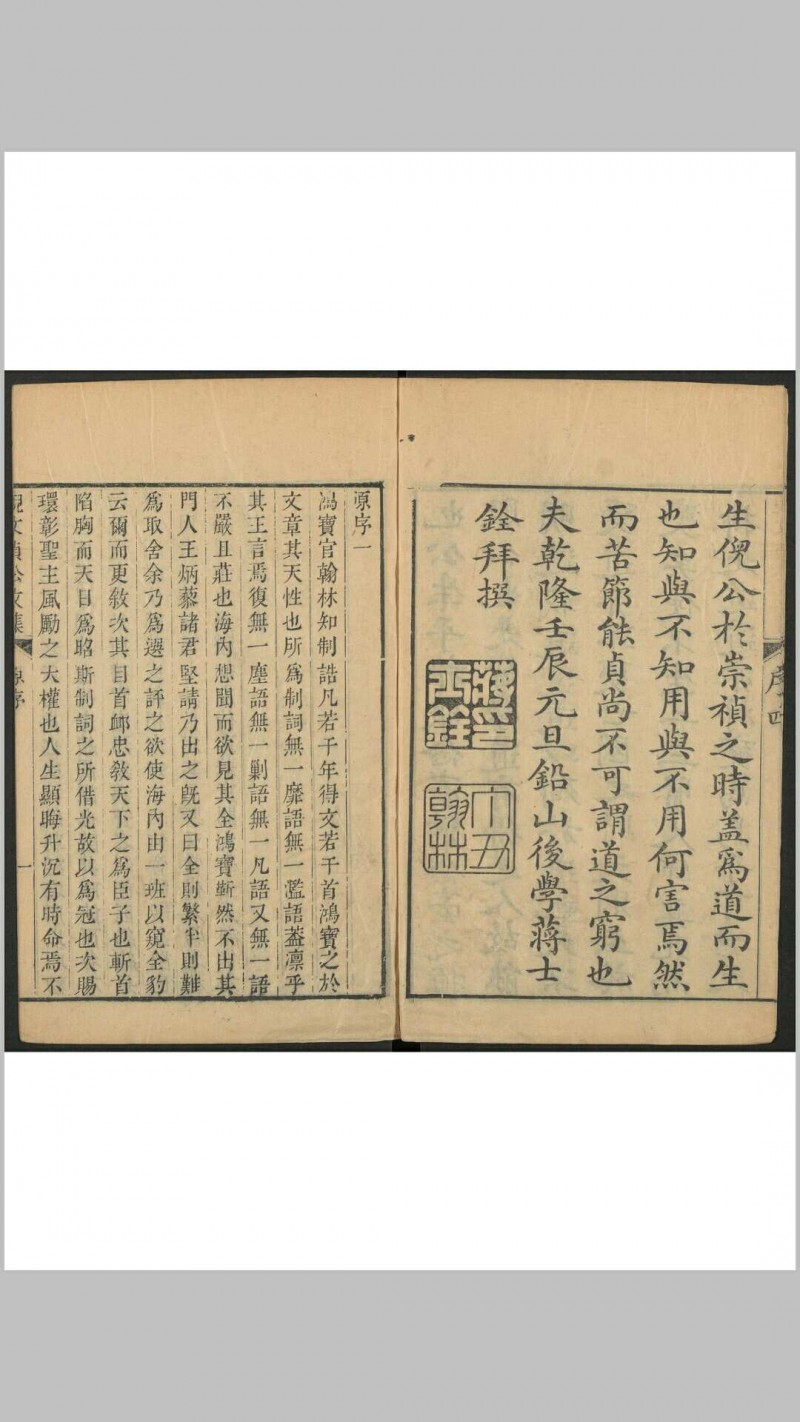 序四
生倪公於崇禎之時蓋爲道而生
也知與不知用與不用何害焉然
而苦節能貞尚不可謂道之窮也
夫乾隆壬辰元旦鉛山後學蔣士
銓拜撰
蔣士銓印
丁丑翰林
原序一
鴻寶官翰林知制誥凡若干年得文若干首鴻寶之於
文章其天性也所爲制詞無一靡語無一濫語蓋凛乎
其王言焉復無一塵語無一剿語無一凡語又無一語
不嚴且莊也海內想聞而欲見其全鴻寶嶄然不出其
門人王炳藜諸君堅請乃出之旣又曰全則繁半則難
爲取舍余乃爲選之評之欲使海內由一班以窺全豹
云爾而更敘次其目首衈忠敎天下之爲臣子也斬首
陷胸而天日爲昭斯制詞之所借光故以爲冠也次賜
環彰聖主風勵之大權也人生顯晦升沉有時命焉不
倪文貞公文集 原序 一